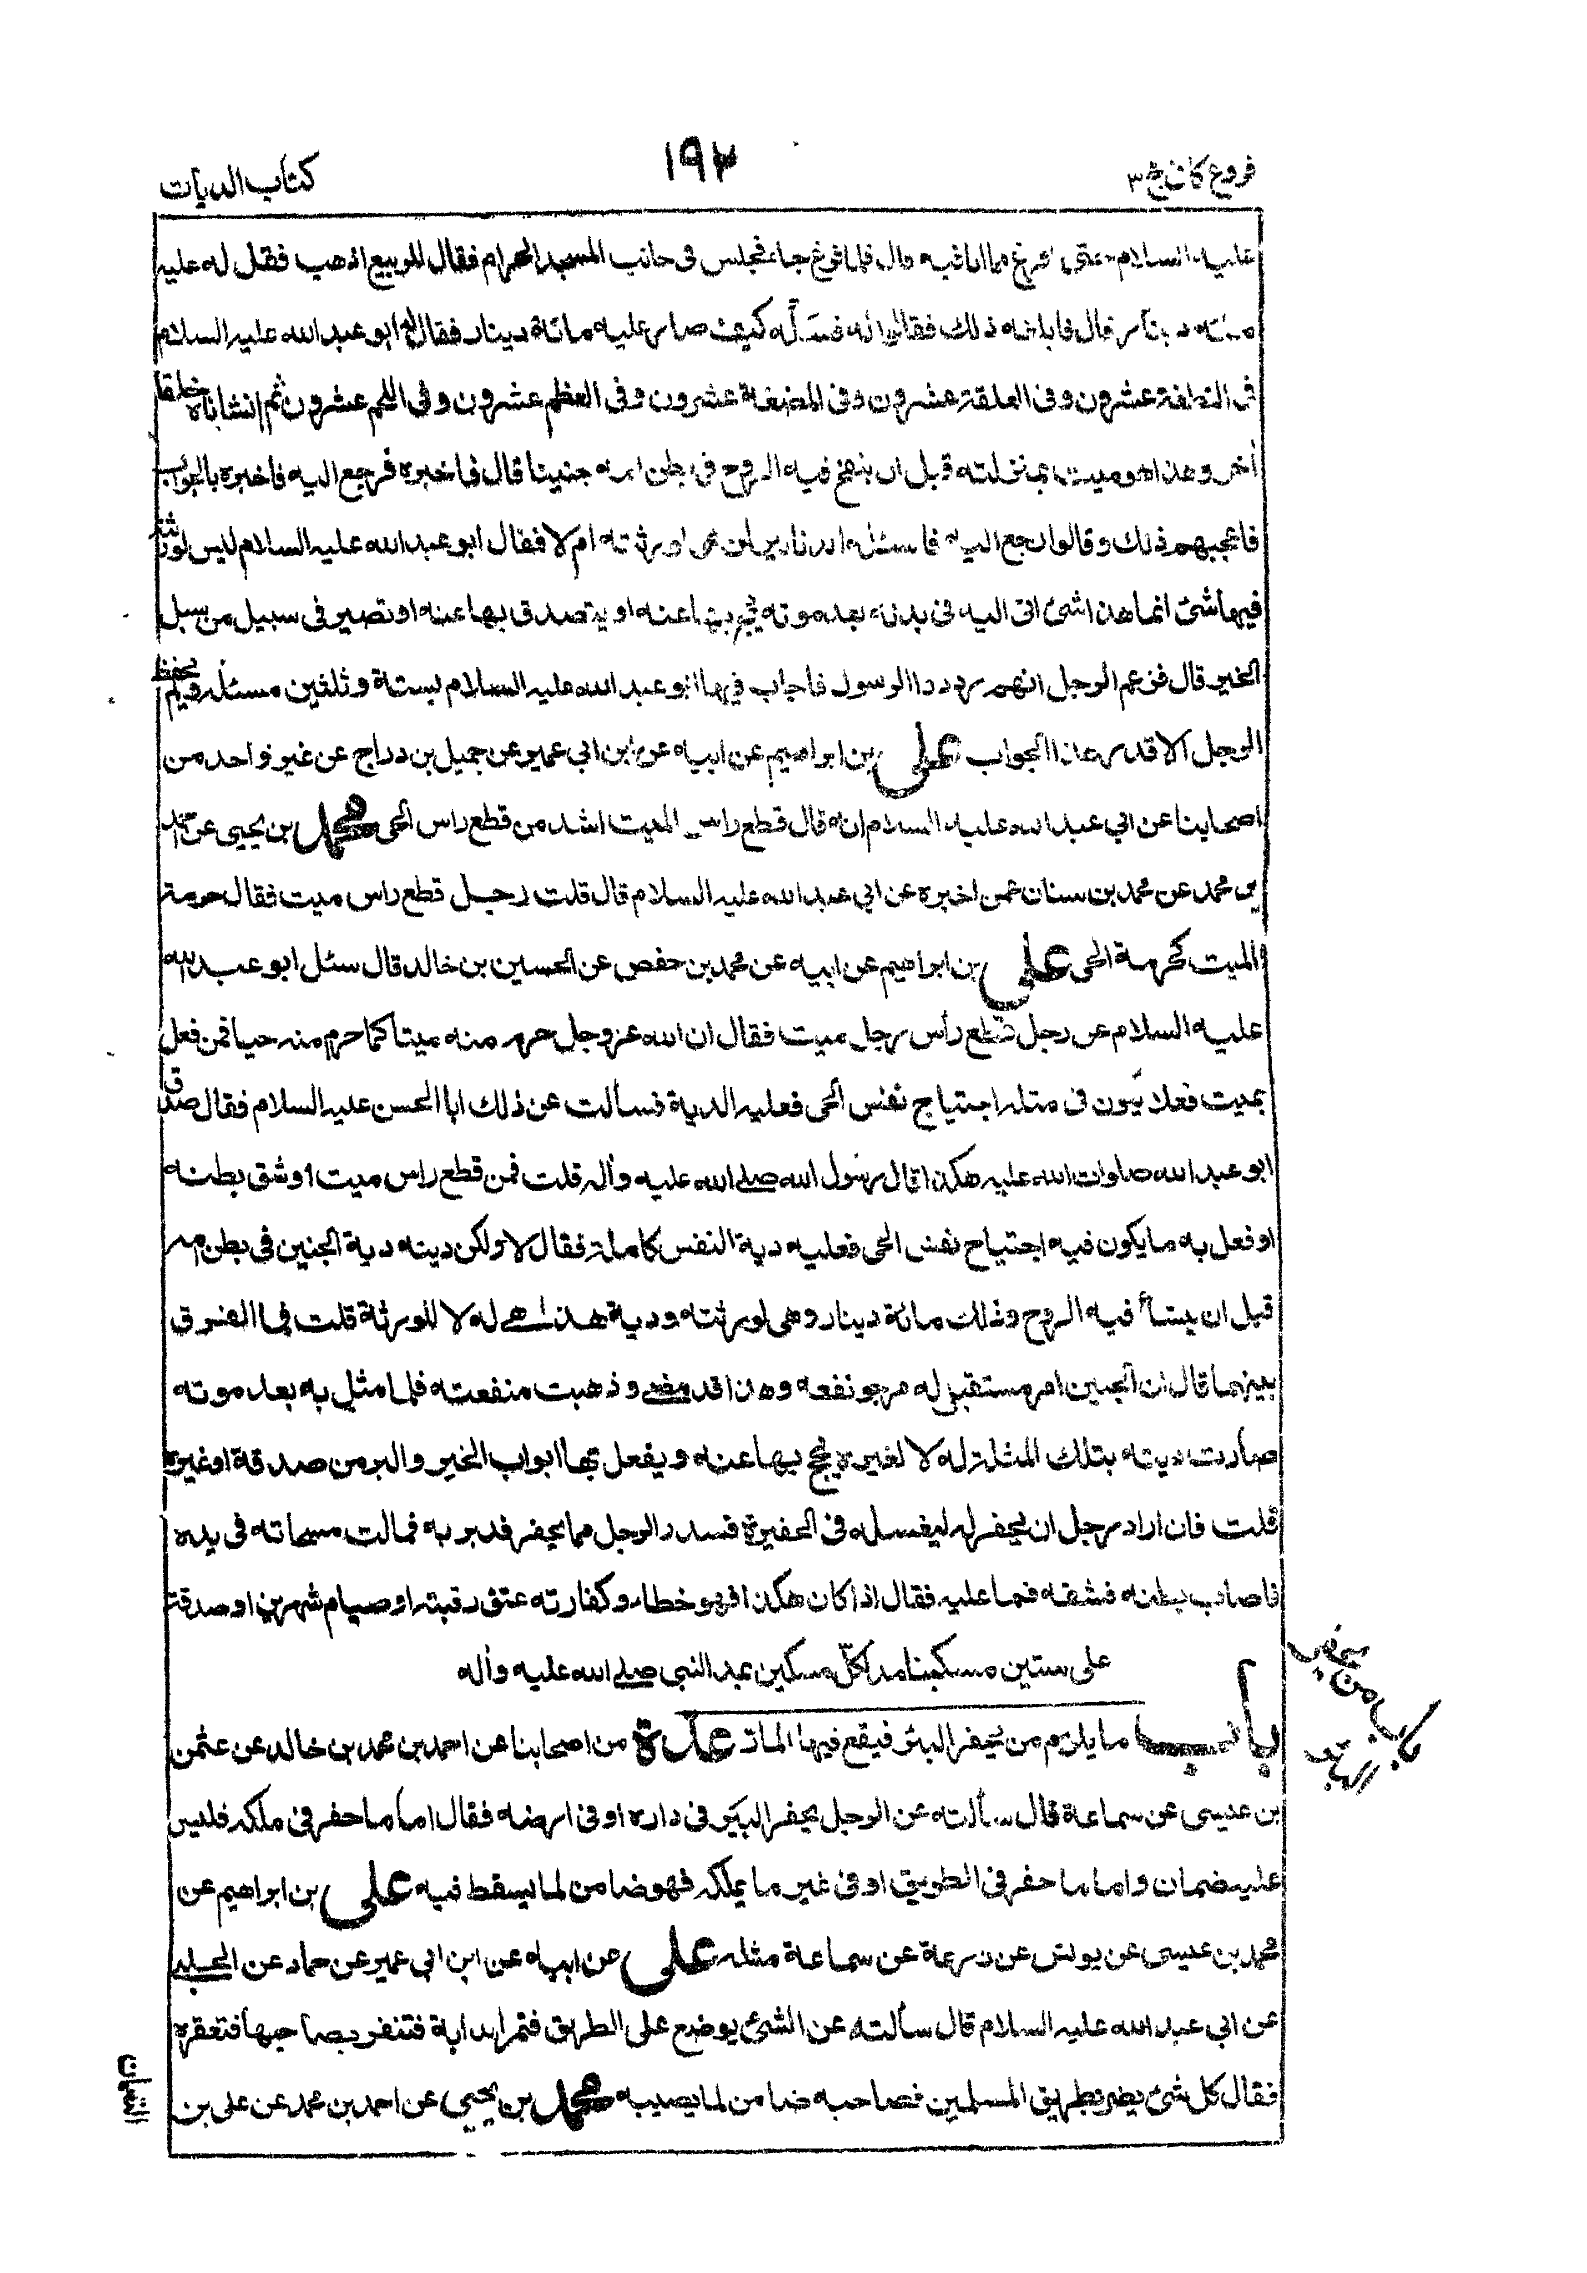 فروع كافى ج ٣
١٩٢
كتاب الديات
عليه السلام حتى افرغ مما انا فيه قال فلما فرغ جاء فجلس فى جانب المسجد الحرام فقال للربيع اذهب فقل له عليه
مائة دينار قال فابلغه ذلك فقالوا له فسئله كيف صار عليه مائة دينار فقال ابو عبد الله عليه السلام
فى النطفة عشرون وفى العلقة عشرون وفى المضغة عشرون وفى العظم عشرون وفى اللحم عشرون ثم انشاناه خلقا
أخر وهذا هو ميت بمنزلته قبل ان ينفخ فيه الروح فى بطن امه جنينا قال فاخبره فرجع اليه فاخبره بالجواب
فاعجبهم ذلك وقالوا ارجع اليه فاسئله الدنانير لمن هى لورثته ام لا فقال ابو عبد الله عليه السلام ليس لورثته
فيها شئ انما هذا شئ اتى اليه فى بدنه بعد موته يحج بها عنه او يتصدق بها عنه او تصير فى سبيل من سبل
الخير قال فزعم الرجل انهم ردوا الرسول فاجاب فيها ابو عبد الله عليه السلام بستة وثلثين مسئلة ولم يحفظ
الرجل الا قدر هذا الجواب على بن ابراهيم عن ابيه عن ابن ابى عمير عن جميل بن دراج عن غير واحد من
اصحابنا عن ابى عبد الله عليه السلام انه قال قطع راس الميت اشد من قطع راس الحى محمد بن يحيى عن احمد
بن محمد عن محمد بن سنان عمن اخبره عن ابى عبد الله عليه السلام قال قلت رجل قطع راس ميت فقال حرمة
الميت كحرمة الحى على بن ابراهيم عن ابيه عن محمد بن حفص عن الحسين بن خالد قال سئل ابو عبد الله
عليه السلام عن رجل قطع رأس رجل ميت فقال ان الله عزوجل حرم منه ميتا كما حرم منه حيا فمن فعل
بميت فعلا يكون فى مثله اجتياح نفس الحى فعليه الدية فسألت عن ذلك ابا الحسن عليه السلام فقال صدق
ابو عبد الله صلوات الله عليه هكذا قال رسول الله صلى الله عليه وأله قلت فمن قطع راس ميت اوشق بطنه
او فعل به ما يكون فيه اجتياح نفس الحى فعليه دية النفس كاملة فقال لا ولكن ديته دية الجنين فى بطن امه
قبل ان ينشأ فيه الروح وذلك مائة دينار وهى لورثته ودية هذا هى له لا للورثة قلت فما الفرق
بينهما قال ان الجنين امر مستقبل له مرجو نفعه وهذا قد مضى وذهبت منفعته فلما مثل به بعد موته
صارت ديته بتلك المثلة له لا لغيره يحج بها عنه ويفعل بها ابواب الخير والبر من صدقة اوغيره
قلت فان اراد رجل ان يحفر له ليغسله فى الحفيرة فسدر الرجل مما يحفر فدير به فمالت مسحاته فى يده
فاصاب بطنه فشقه فما عليه فقال اذا كان هكذا فهو خطاء وكفارته عتق رقبة او صيام شهرين او صدقة
على ستين مسكينا مد لكل مسكين بمد النبى صلى الله عليه وأله
باب ما يلزم من يحفر البئر فيقع فيها المار عدة من اصحابنا عن احمد بن محمد بن خالد عن عثمن
بن عيسى عن سماعة قال سألته عن الرجل يحفر البئر فى داره او فى ارضه فقال اما ما حفر فى ملكه فليس
عليه ضمان واما ما حفر فى الطريق او فى غير ما يملكه فهو ضامن لما يسقط فيه على بن ابراهيم عن
محمد بن عيسى عن يونس عن زرعة عن سماعة مثله على عن ابيه عن ابن ابى عمير عن حماد عن الحلبى
عن ابى عبد الله عليه السلام قال سألته عن الشئ يوضع على الطريق فتمر الدابة فتنفر بصاحبها فتعقره
فقال كل شئ يضر بطريق المسلمين فصاحبه ضامن لما يصيبه محمد بن يحيى عن احمد بن محمد عن على بن
النعمان